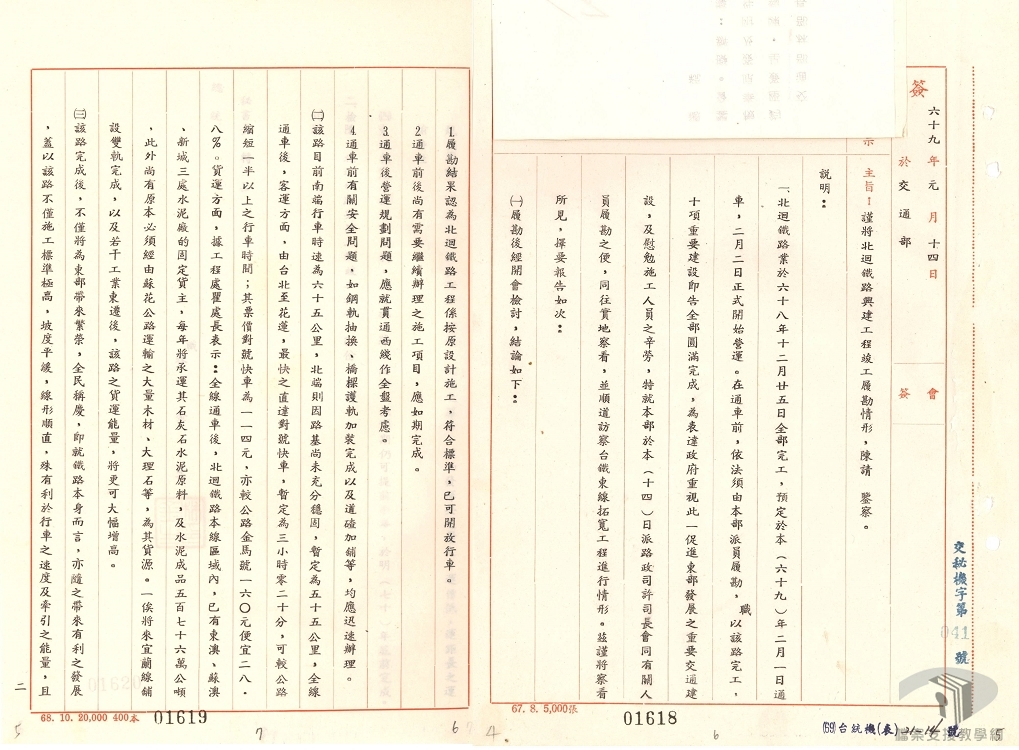 簽
六十九年元月十四日
於交通部
會
簽
示
主旨：謹將北迴鐵路興建工程竣工履勘情形，陳請　鑒察。
說明：
一、北迴鐵路業於六十八年十二月廿五日全部完工，預定於本（六十九）年二月一日通
車，二月二日正式開始營運。在通車前，依法須由本部派員履勘，職以該路完工，
十項重要建設即告全部圓滿完成，為表達政府重視此一促進東部發展之重要交通建
設，及慰勉施工人員之辛勞，特就本部於本（十四）日派路政司許司長會同有關人
員履勘之便，同往實地察看，並順道訪察台鐵東線拓寬工程進行情形。茲謹將察看
所見，擇要報告如次：
㈠履勘後經開會檢討，結論如下：
交秘機字第041號
(69)台統機(表)
號
01618
67. 8. 5,000張
1.履勘結果認為北迴鐵路工程係按原設計施工，符合標準，已可開放行車。
2.通車前後尚有需要繼續辦理之施工項目，應如期完成。
3.通車後營運規劃問題，應就貫通西綫作全盤考慮。
4.通車前有關安全問題，如鋼軌抽換、橋樑護軌加裝完成以及道碴加舖等，均應迅速辦理。
㈡該路目前南端行車時速為六十五公里，北端則因路基尚未充分穩固，暫定為五十五公里，全線
通車後，客運方面，由台北至花蓮，最快之直達對號快車，暫定為三小時零二十分，可較公路
縮短一半以上之行車時間；其票價對號快車為一一四元，亦較公路金馬號一六０元便宜二八·
八％。貨運方面，據工程處瞿處長表示：全線通車後，北迴鐵路本線區域內，已有東澳、蘇澳
、新城三處水泥廠的固定貨主，每年將承運其石灰石水泥原料，及水泥成品五百七十六萬公噸
，此外尚有原本必須經由蘇花公路運輸之大量木材、大理石等，為其貨源。一俟將來宜蘭線舖
設雙軌完成，以及若干工業東遷後，該路之貨運能量，將更可大幅增高。
㈢該路完成後，不僅將為東部帶來繁榮，全民稱慶，即就鐵路本身而言，亦隨之帶來有利之發展
，蓋以該路不僅施工標準極高，坡度平緩，線形順直，殊有利於行車之速度及牽引之能量，且
二
68. 10. 20,000 400本
01619
01620
5
7
6
4
6
5
檔案支援教學網